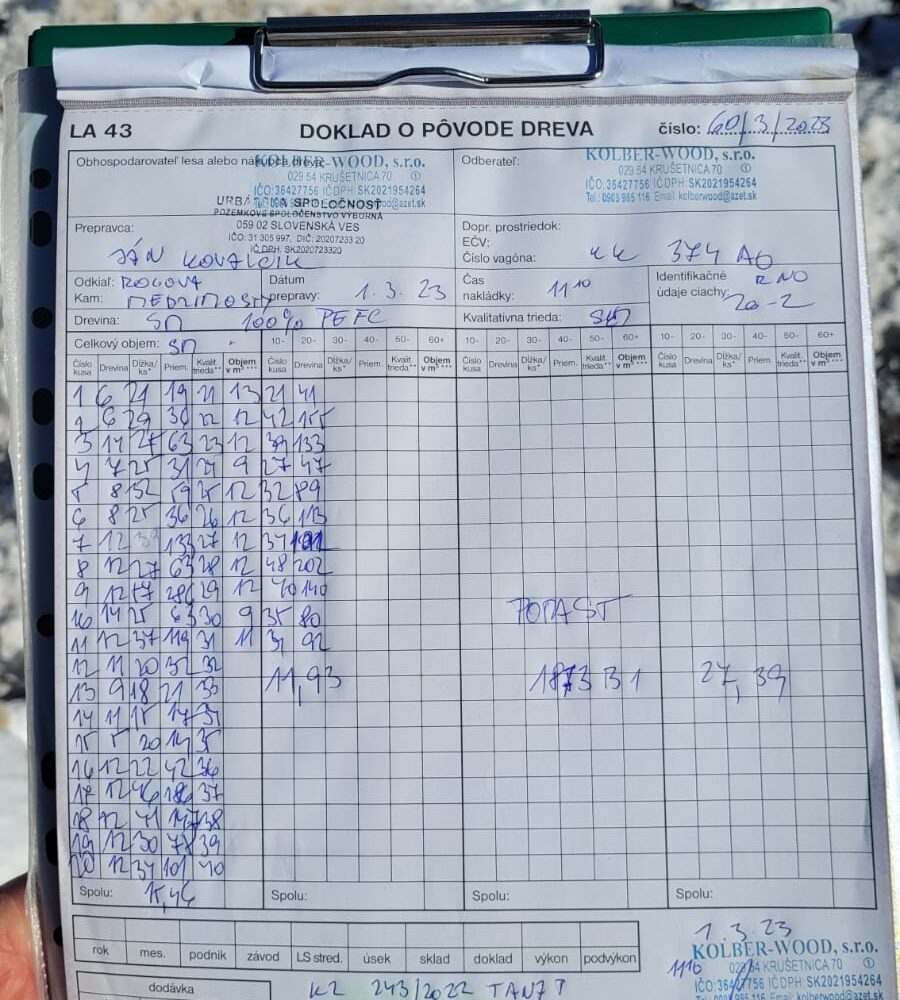 LA 43 DOKLAD O PÔVODE DREVA číslo: 60/3/2023
Obhospodarovateľ lesa alebo nákupca dreva:
KOLBER-WOOD, s.r.o.
029 54 KRUŠETNICA 70 ①
IČO: 36427756 IČ DPH: SK2021954264
URBÁRSKA SPOLOČNOSŤ
POZEMKOVÉ SPOLOČENSTVO VÝBORNÁ
059 02 SLOVENSKÁ VES
IČO: 31 305 997, DIČ: 2020723320
IČ DPH: SK2020723320
Odberateľ:
KOLBER-WOOD, s.r.o.
029 54 KRUŠETNICA 70 ①
IČO: 36427756 IČ DPH: SK2021954264
Tel.: 0903 985 116 Email: kolberwood@azet.sk
Prepravca:
JÁN KOVALČIK
Dopr. prostriedok:
EČV:
Číslo vagóna: KK 374 AG
Odkiaľ: ROGOVA
Kam:
Dátum
prepravy: 1.3.23
Čas
nakládky: 11 10
Identifikačné
údaje ciachy: RNO
20-2
Drevina: SM 100% PEFC
Kvalitatívna trieda:
Celkový objem: SM
10- 20- 30- 40- 50- 60+ 10- 20- 30- 40- 50- 60+ 10- 20- 30- 40- 50- 60+
Číslo kusa Drevina Dĺžka/ks* Priem. Kvalit. trieda** Objem v m³ *** Číslo kusa Drevina Dĺžka/ks* Priem. Kvalit. trieda** Objem v m³ *** Číslo kusa Drevina Dĺžka/ks* Priem. Kvalit. trieda** Objem v m³ *** Číslo kusa Drevina Dĺžka/ks* Priem. Kvalit. trieda** Objem v m³ ***
1 6 21 19 21 13 21 41
2 6 29 36 22 12 42 155
3 14 27 63 23 12 39 133
4 7 25 31 24 9 27 47
5 8 32 59 25 12 32 89
6 8 25 36 26 12 36 113
7 12 39 133 27 12 37
8 12 27 63 28 12 48 202
9 12 17 28 29 12 40 140
10 14 25 63 30 9 35 80
11 12 37 119 31 11 31 92
12 11 20 32 32
13 9 18 21 33
11,93 1873 B 1 27,39
14 11 15 17 34
15 5 20 14 35
16 12 22 42 36
17 12 46 186 37
18 12 41 147 38
19 12 30 78 39
20 12 34 101 40
Spolu: 15,46 Spolu: Spolu: Spolu:
1.3.23
rok mes. podnik závod LS stred. úsek sklad doklad výkon podvýkon
KOLBER-WOOD, s.r.o.
029 54 KRUŠETNICA 70 ①
IČO: 36427756 IČ DPH: SK2021954264
dodávka
KZ 243/2022